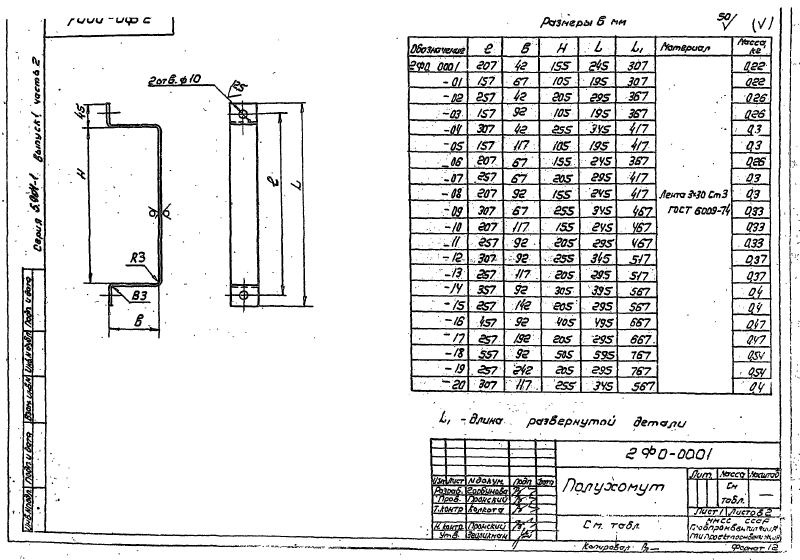 Размеры в мм
50 (√)
Обозначение ℓ В Н L L₁ Материал Масса, кг
2Ф0.0001 207 42 155 245 307 0,22
-01 157 67 105 195 307 0,22
-02 257 42 205 295 367 0,26
-03 157 92 105 195 367 0,26
-04 307 42 255 345 417 0,3
-05 157 117 105 195 417 0,3
-06 207 67 155 245 367 0,26
-07 257 67 205 295 417 0,3
-08 207 92 155 245 417 Лента 3×30 Ст3 0,3
-09 307 67 255 345 467 ГОСТ 6009-74 0,33
-10 207 117 155 245 467 0,33
-11 257 92 205 295 467 0,33
-12 307 92 255 345 517 0,37
-13 257 117 205 295 517 0,37
-14 357 92 305 395 567 0,4
-15 257 142 205 295 567 0,4
-16 457 92 405 495 667 0,47
-17 257 192 205 295 667 0,47
-18 557 92 505 595 767 0,54
-19 257 242 205 295 767 0,54
-20 307 117 255 345 567 0,4
L₁ - Длина развернутой детали
2 отв. ф10
45
Н
ℓ
L
R3
В3
В
Выпуск 1 часть 2
Серия
2Ф0-0001
Полухомут
Лит. Масса Масштаб
См табл. —
Лист 1 Листов 2
Изм Лист N докум. Подп. Дата
Разраб. Горбунова
Пров. Пронский
Т.контр Колкота
Н.контр. Пронский
Утв.
См. табл.
ММСС СССР
Копировал Формат 12